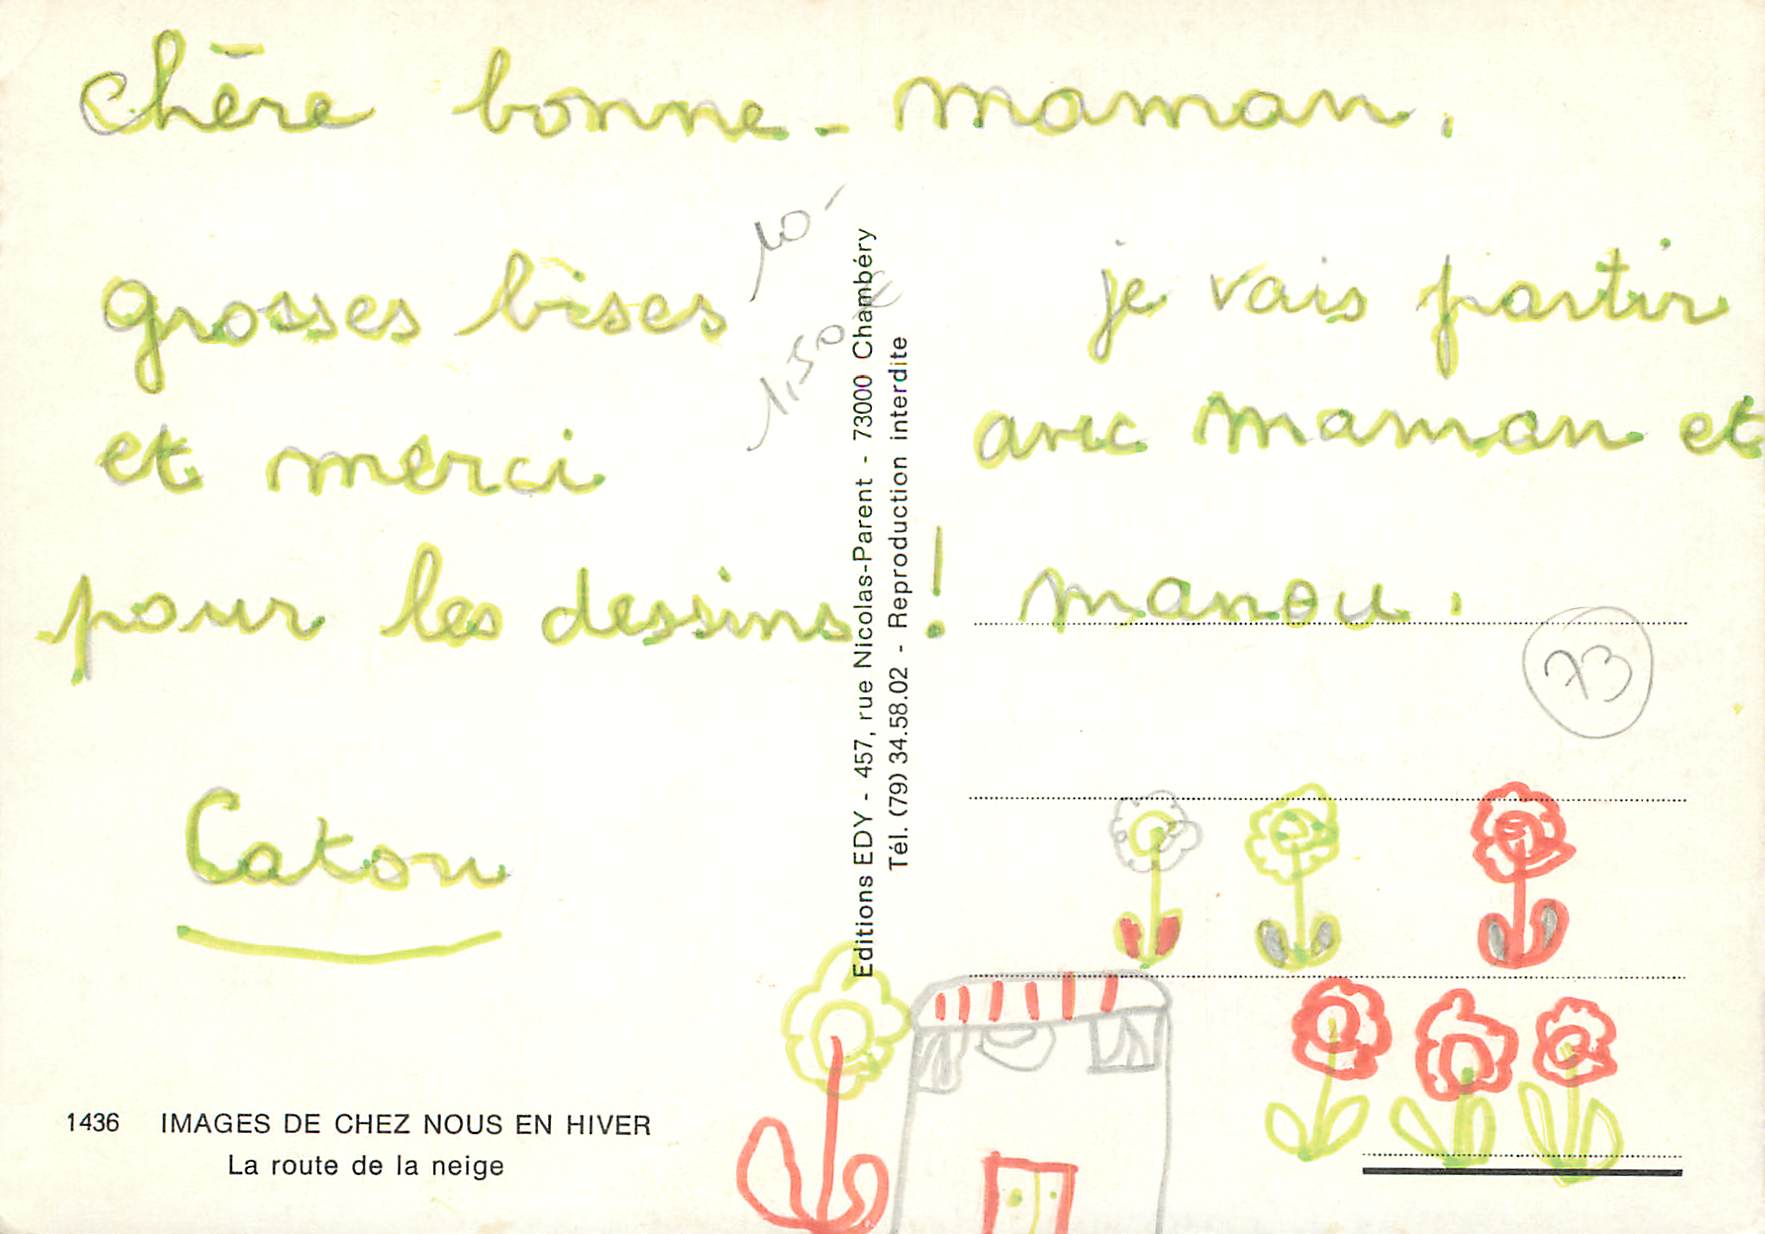 chère bonne-maman,
grosses bises
et merci
pour les dessins !
Caton
je vais partir
avec maman et
manou.
10-
1,50 €
73
Editions EDY - 457, rue Nicolas-Parent - 73000 Chambéry
Tél. (79) 34.58.02 - Reproduction interdite
1436 IMAGES DE CHEZ NOUS EN HIVER
La route de la neige